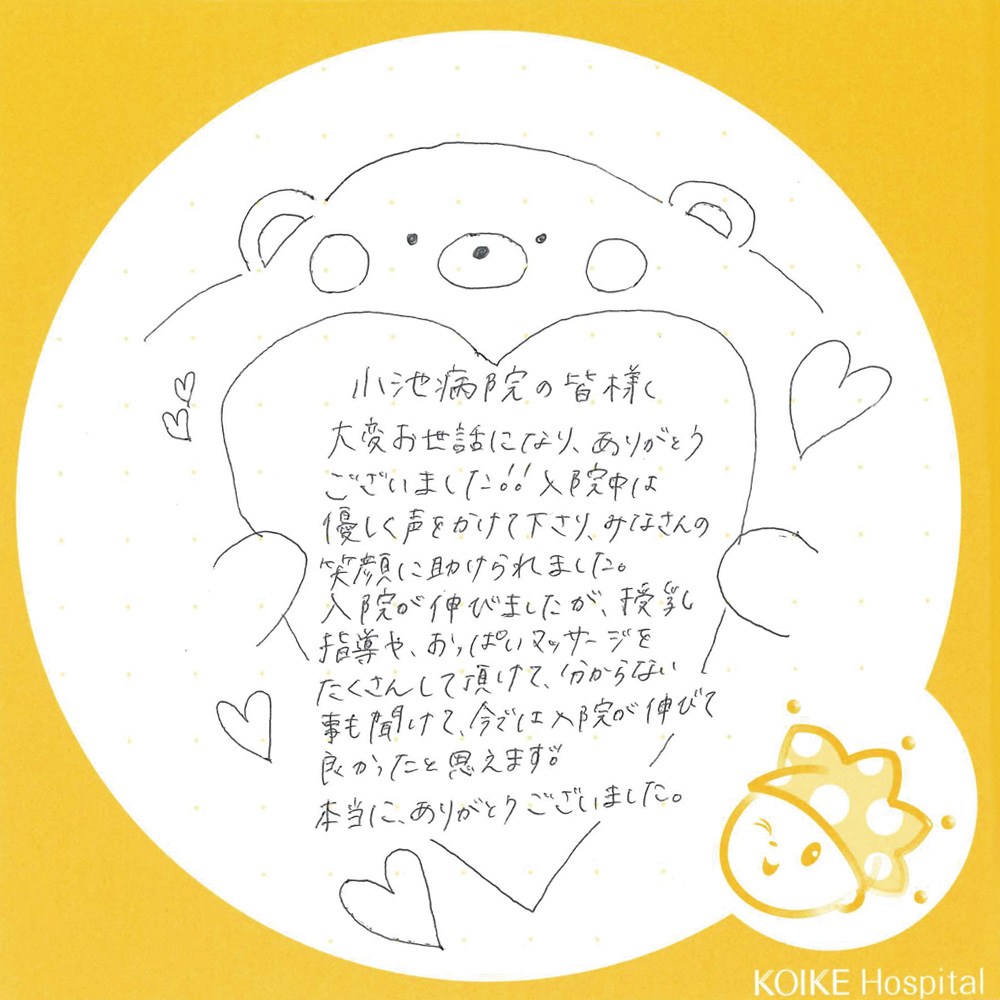 小池病院の皆様へ
大変お世話になり、ありがとう
ございました!! 入院中は
優しく声をかけて下さり、みなさんの
笑顔に助けられました。
入院が伸びましたが、授乳
指導や、おっぱいマッサージを
たくさんして頂けて、分からない
事も聞けて、今では入院が伸びて
良かったと思えます。
本当に、ありがとうございました。
KOIKE Hospital